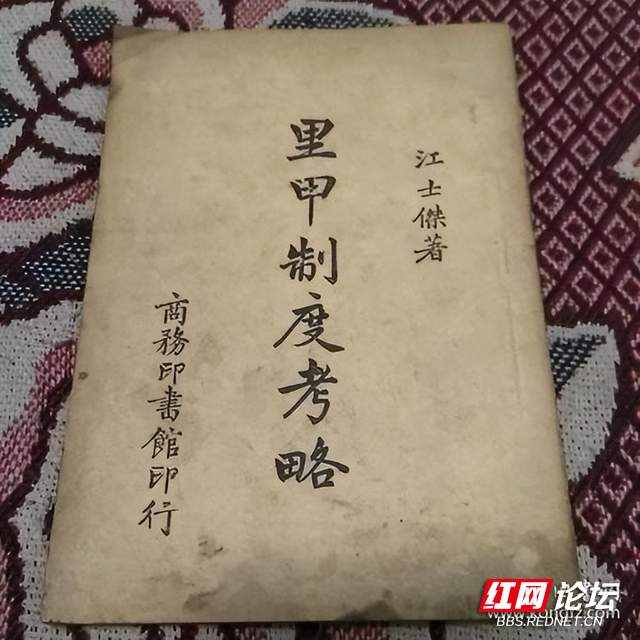 江士傑著
里甲制度考略
商務印書館印行
红网论坛
BBS.REDNET.CN